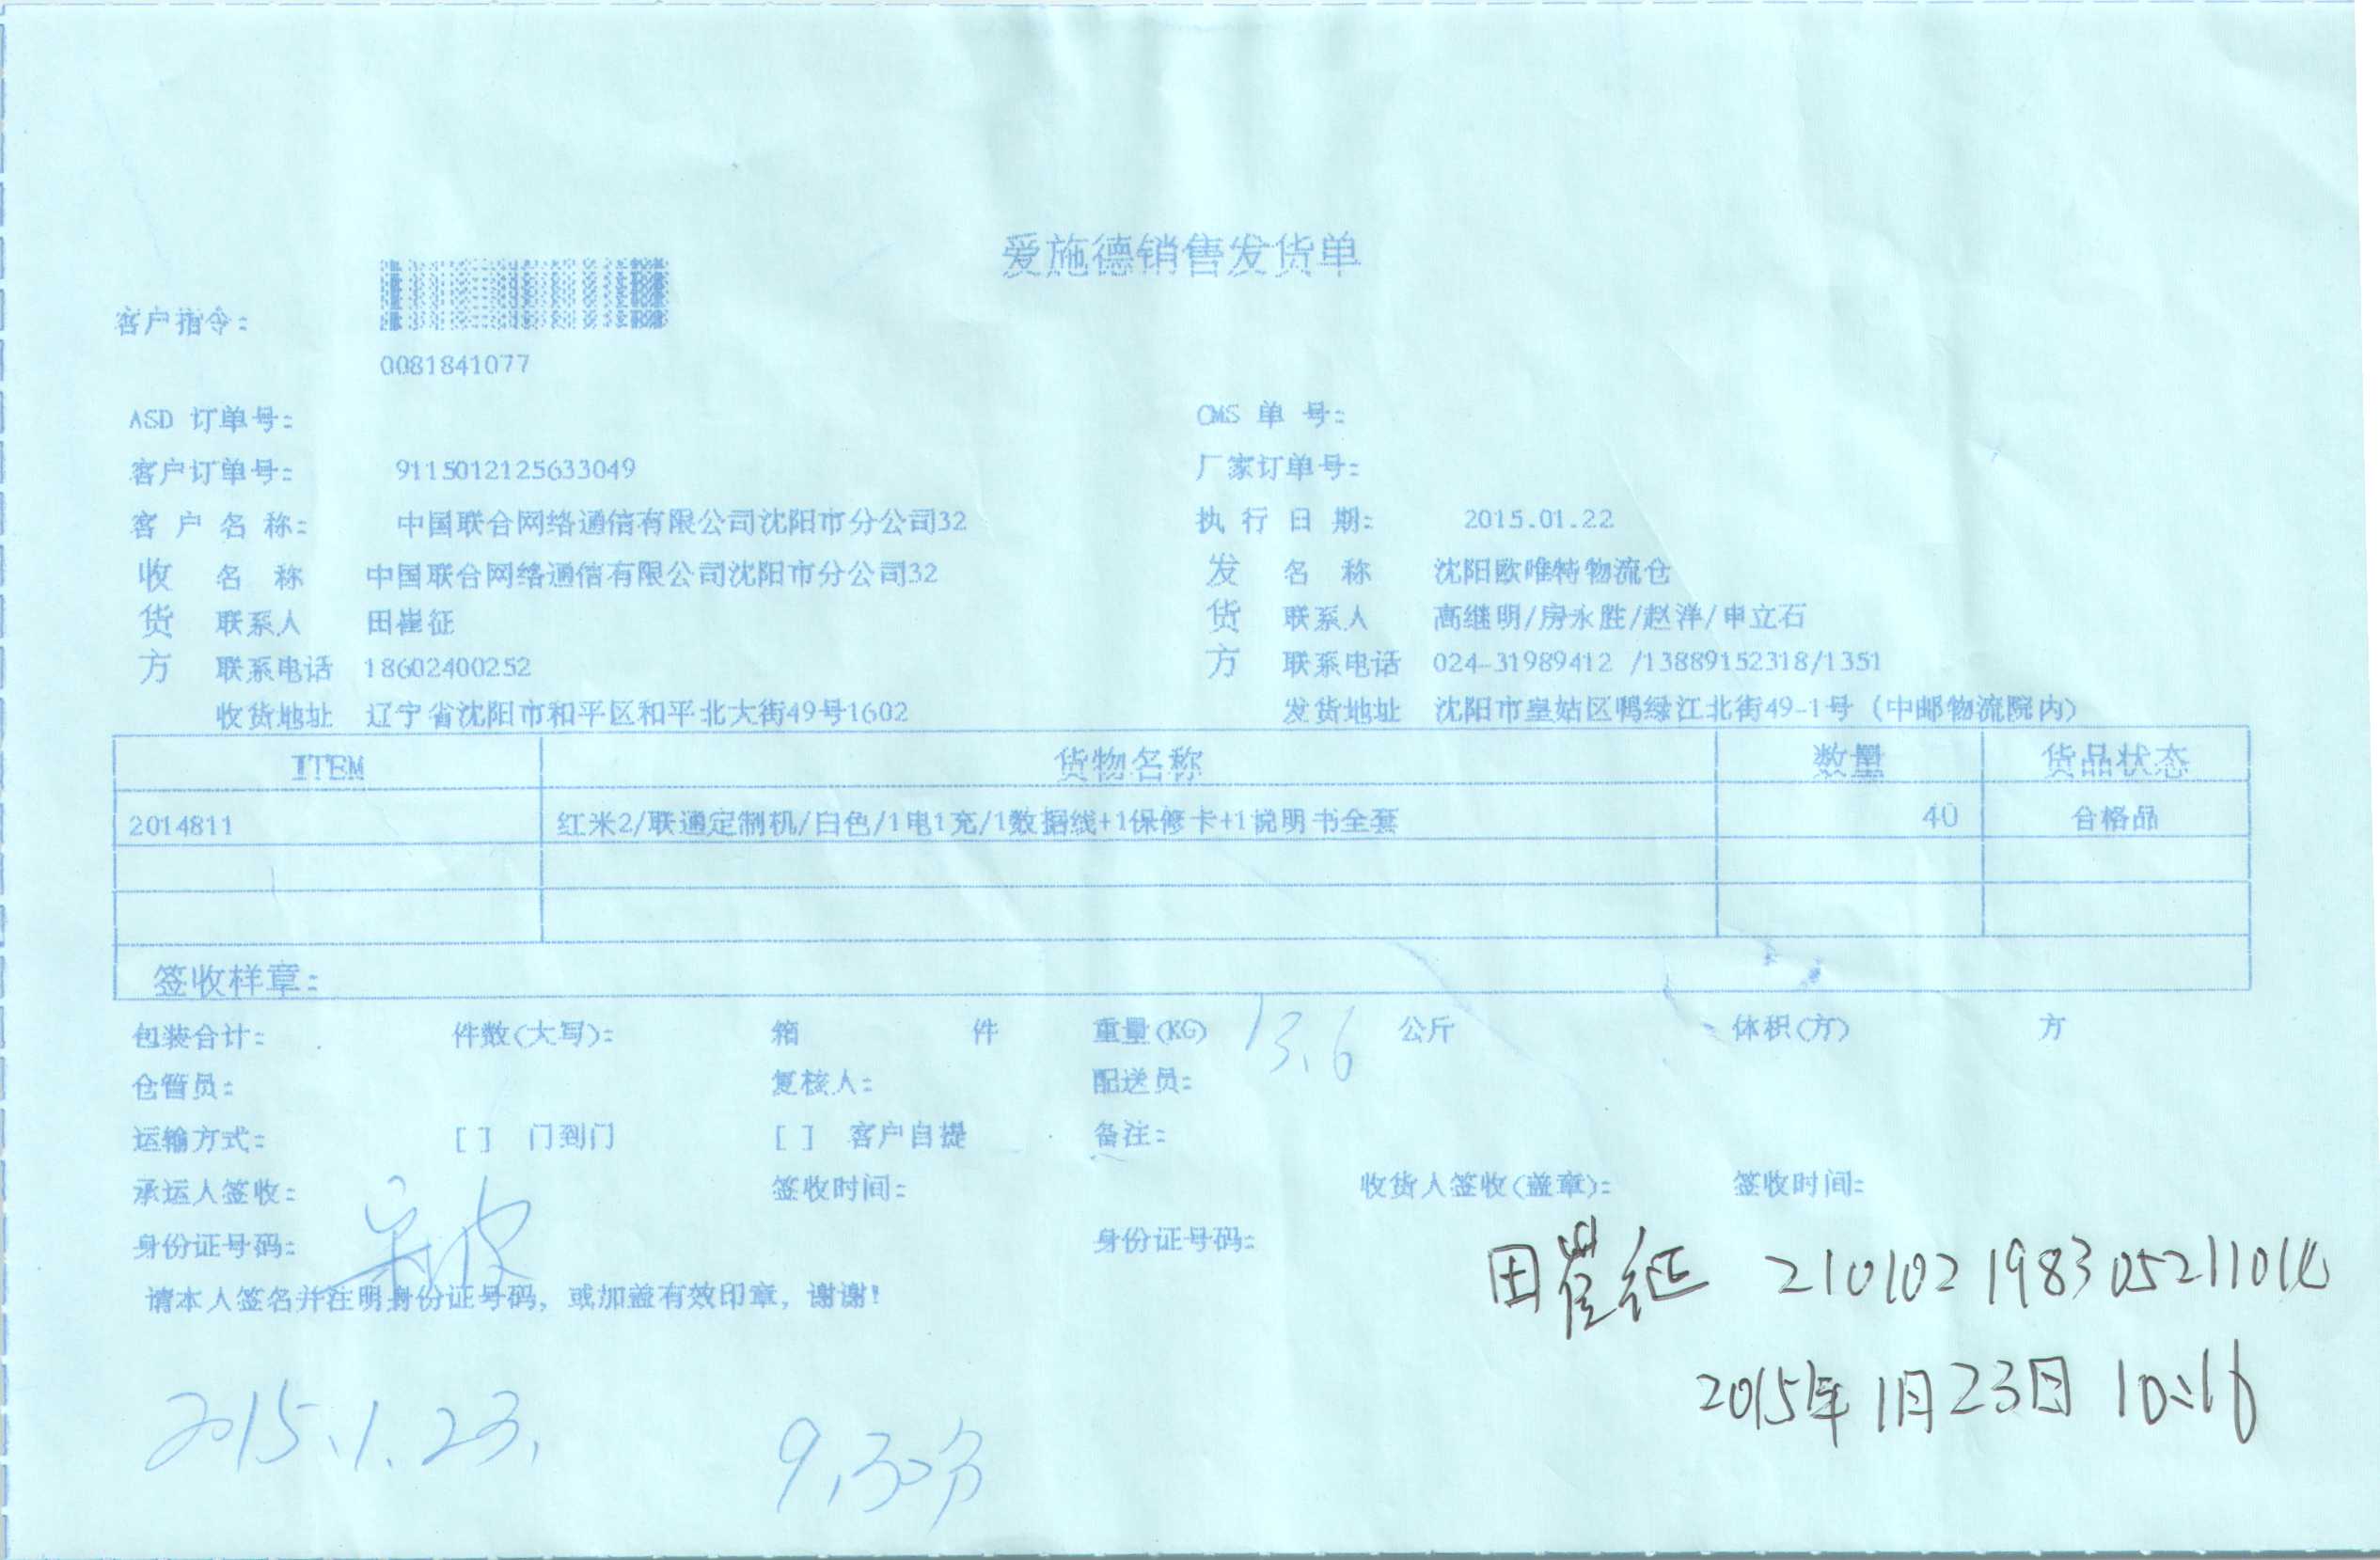 爱施德销售发货单
客户指令:
0081841077
ASD 订单号: CMS 单 号:
客户订单号: 9115012125633049 厂家订单号:
客 户 名 称: 中国联合网络通信有限公司沈阳市分公司32 执 行 日 期: 2015.01.22
收 名 称 中国联合网络通信有限公司沈阳市分公司32 发 名 称 沈阳欧唯特物流仓
货 联系人 田崔征 货 联系人 高继明/房永胜/赵洋/申立石
方 联系电话 18602400252 方 联系电话 024-31989412 /13889152318/1351
收货地址 辽宁省沈阳市和平区和平北大街49号1602 发货地址 沈阳市皇姑区鸭绿江北街49-1号 (中邮物流院内)
ITEM 货物名称 数量 货品状态
2014811 红米2/联通定制机/白色/1电1充/1数据线+1保修卡+1说明书全套 40 合格品
签收样章:
包装合计: 件数(大写): 箱 件 重量(KG) 13.6 公斤 体积(方) 方
仓管员: 复核人: 配送员:
运输方式: [ ] 门到门 [ ] 客户自提 备注:
承运人签收: 签收时间: 收货人签收(盖章): 签收时间:
身份证号码: 身份证号码:
田崔征
请本人签名并注明身份证号码, 或加盖有效印章, 谢谢!
2015年1月23日 10:16
2015.1.23. 9.30分